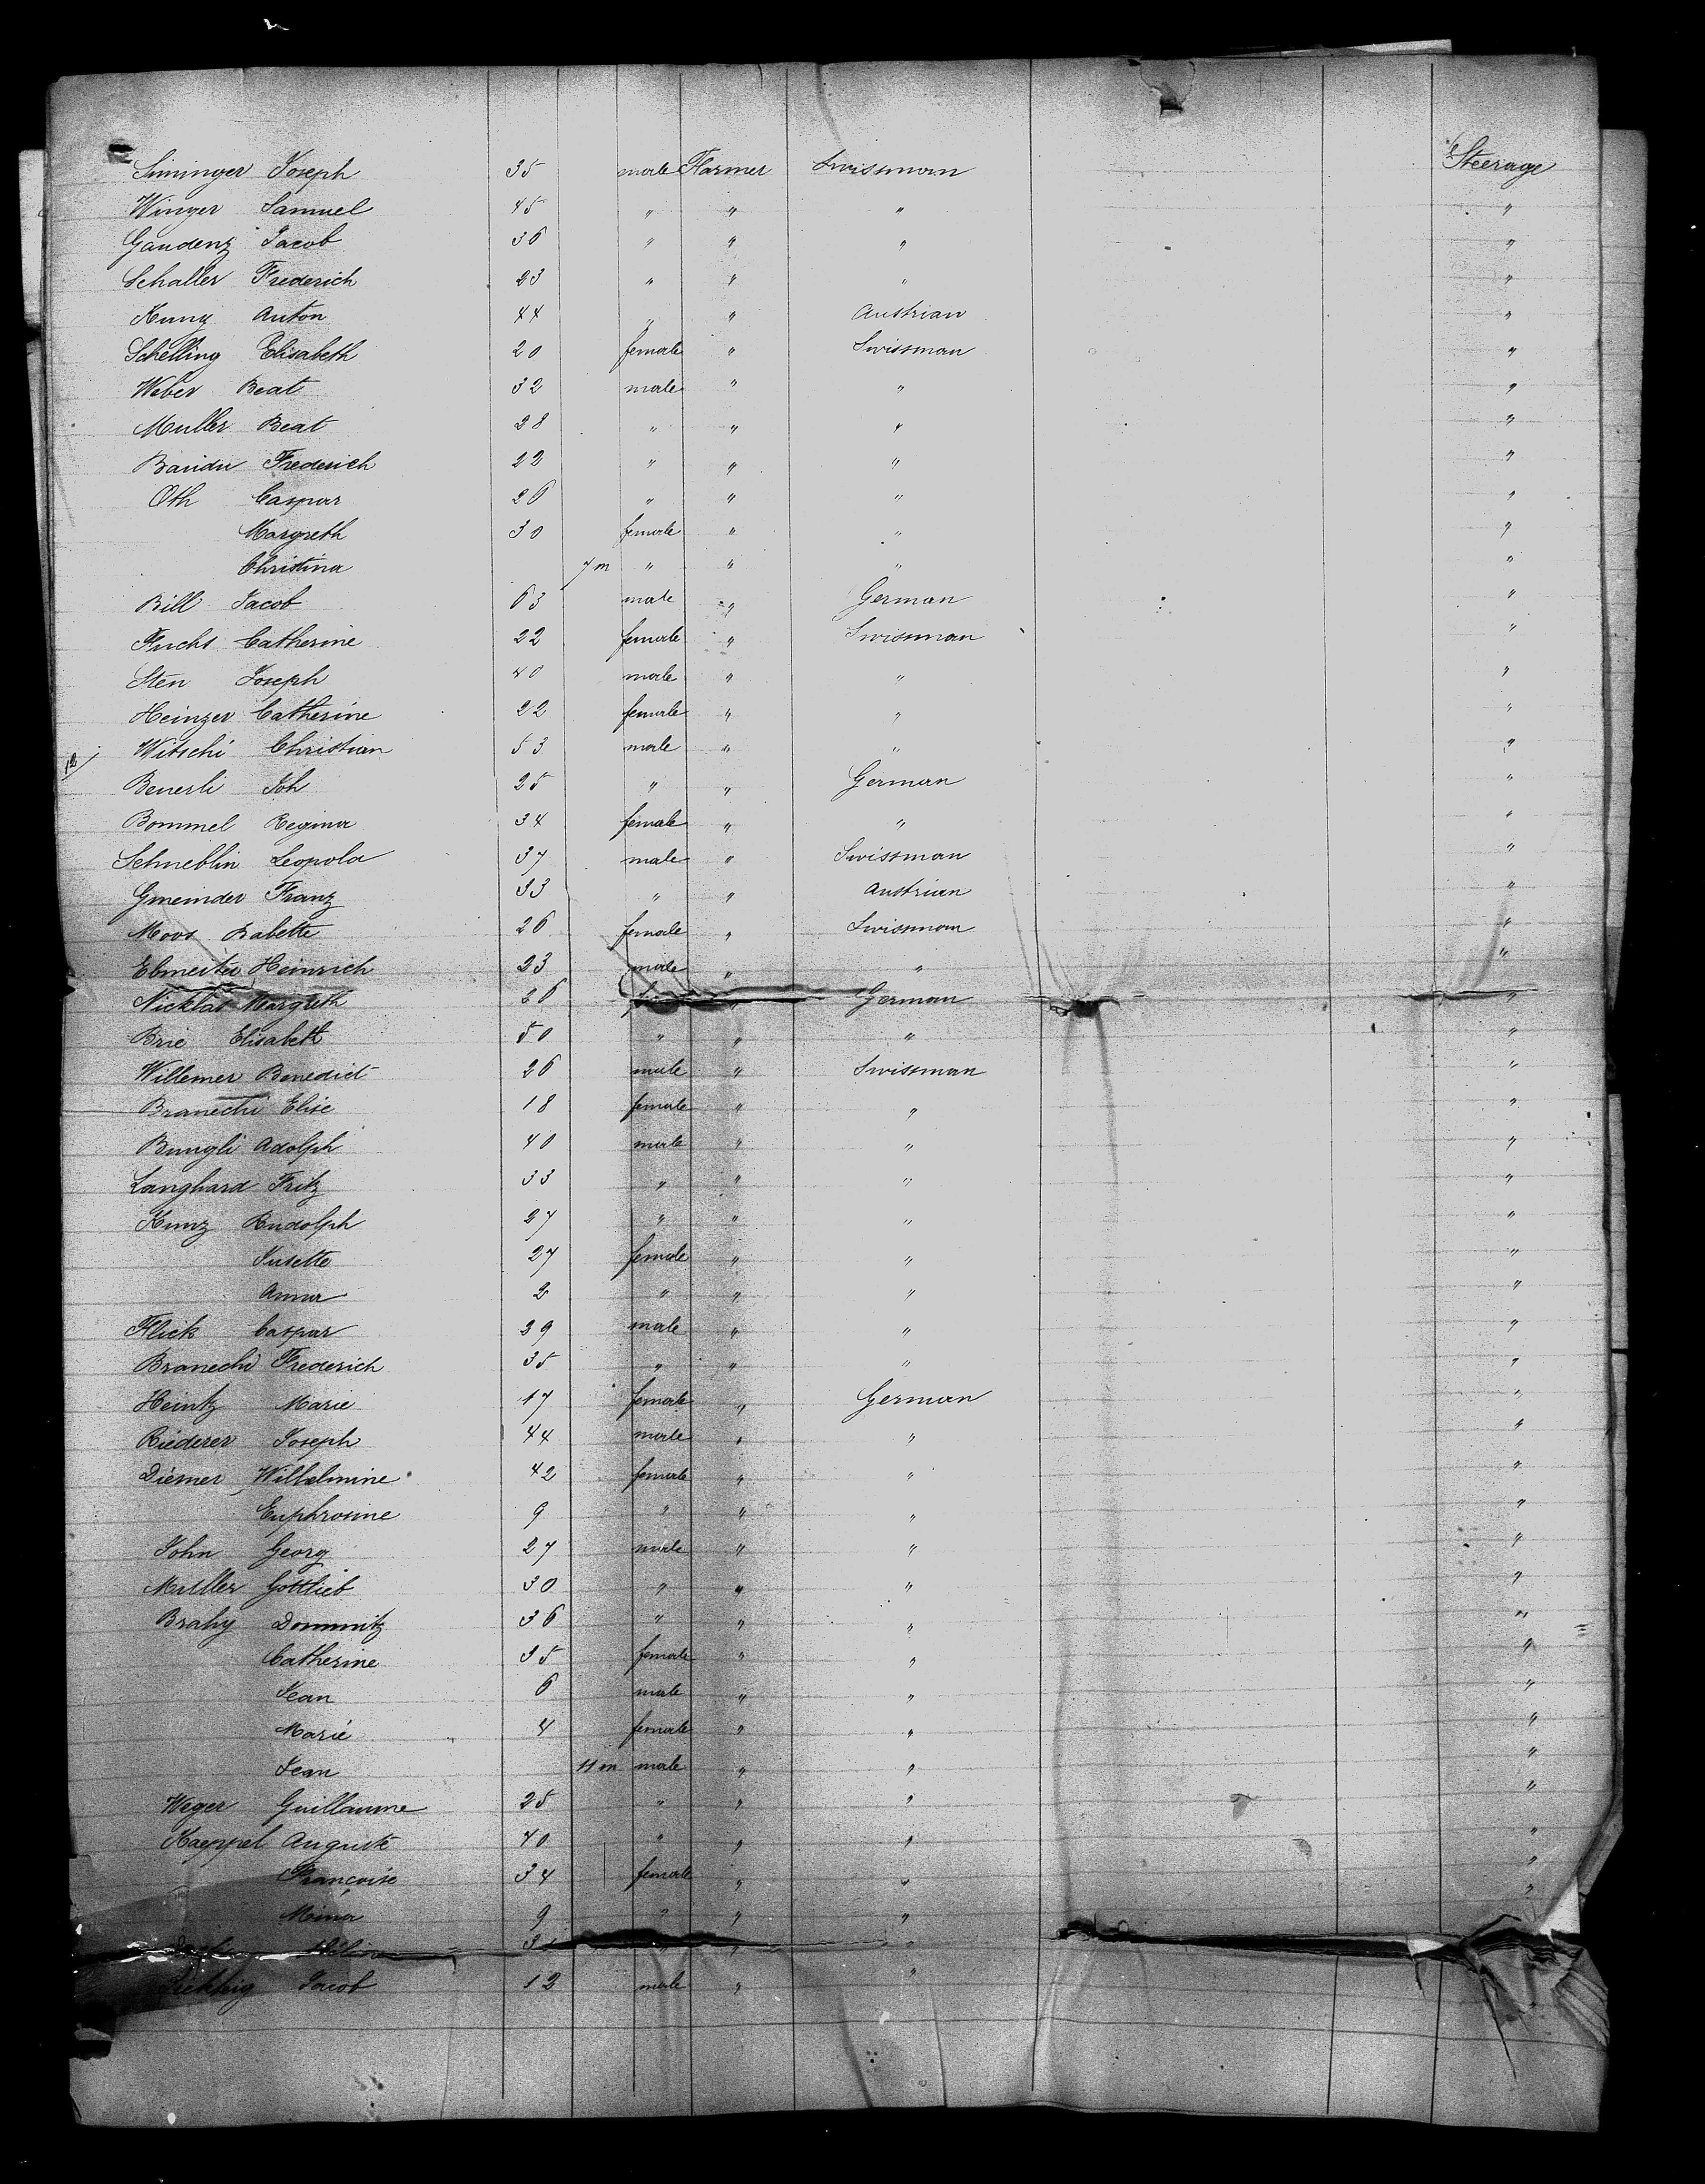 Siminger Joseph 35 male Farmer Swissman Steerage
Winger Samuel 45 " " " "
Gaudenz Jacob 36 " " " "
Schaller Frederich 23 " " " "
Kunz Anton 44 " " Austrian "
Schelling Elisabeth 20 female " Swissman "
Weber Beat 32 male " " "
Muller Beat 28 " " " "
Baridu Frederich 22 " " " "
Oth Caspar 26 " " " "
Margreth 30 female " " "
Christina 7 m " " " "
Bill Jacob 63 male " German "
Fuchs Catherine 22 female " Swissman "
Sten Joseph 40 male " " "
Heinzer Catherine 22 female " " "
Witschi Christian 53 male " " "
Benerli Joh 25 " " German "
Bommel Regina 34 female " " "
Schneblin Leopold 37 male " Swissman "
Gmeinder Franz 33 " " Austrian "
Moos Babette 26 female " Swissman "
Ebmeiter Heinrich 23 male " " "
Nicklas Margreth 26 " German "
Brie Elisabeth 50 " " " "
Willemer Benedict 26 male " Swissman "
Branechi Elise 18 female " " "
Bungli Adolph 40 male " " "
Langhard Fritz 33 " " " "
Kunz Rudolph 27 " " " "
Susette 27 female " " "
Anna 2 " " " "
Flick Caspar 39 male " " "
Branechi Frederich 35 " " " "
Heintz Marie 17 female " German "
Riederer Joseph 44 male " " "
Diemer Wilhelmine 42 female " " "
Euphrosine 9 " " " "
John Georg 27 male " " "
Muller Gottlieb 30 " " " "
Brahy Dominitz 36 " " " "
Catherine 35 female " " "
Jean 6 male " " "
Marie 4 female " " "
Jean 11 m male " " "
Weger Guillaume 25 " " " "
Kaeppel Auguste 40 " " " "
Françoise 34 female " " "
Mina 9 " " "
Jacob 12 male " "